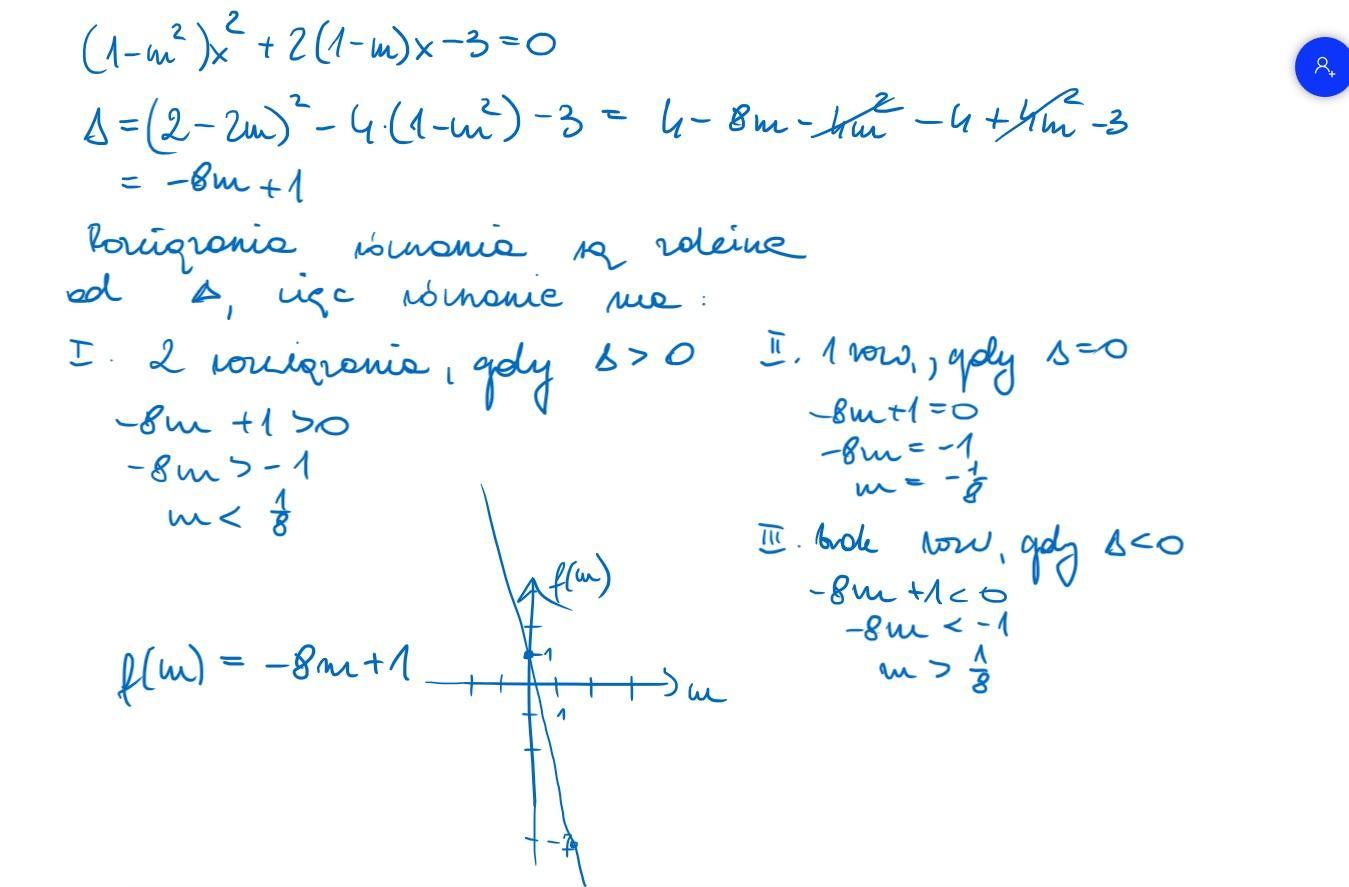 (1-m²)x² + 2(1-m)x - 3 = 0
Δ = (2-2m)² - 4·(1-m²) - 3 = 4 - 8m - 4m² - 4 + 4m² - 3
= -8m + 1
Rozwiązania równania są zależne
od Δ, więc równanie ma:
I. 2 rozwiązania, gdy Δ > 0
-8m + 1 > 0
-8m > -1
m < 1/8
II. 1 rozw., gdy Δ = 0
-8m + 1 = 0
-8m = -1
m = -1/8
III. brak rozw, gdy Δ < 0
-8m + 1 < 0
-8m < -1
m > 1/8
f(m) = -8m + 1
f(m)
1
m
1
-7